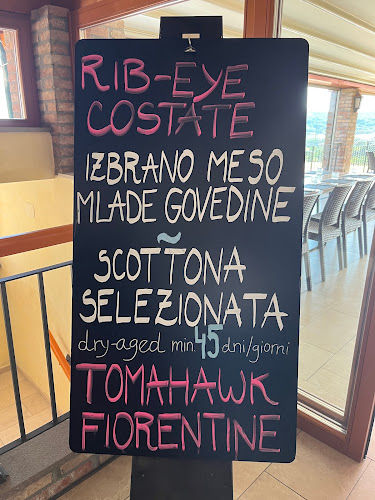 RIB-EYE
COSTATE
IZBRANO MESO
MLADE GOVEDINE
~
SCOTTONA
SELEZIONATA
dry-aged min. 45 dni/giorni
TOMAHAWK
FIORENTINE